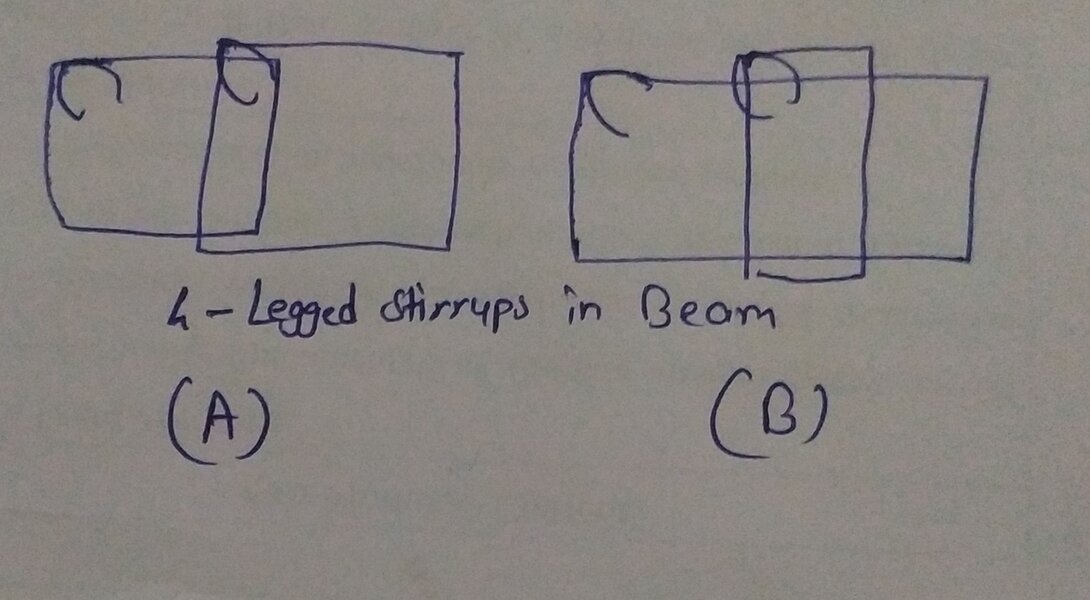 4-Legged stirrups in Beam
(A) (B)